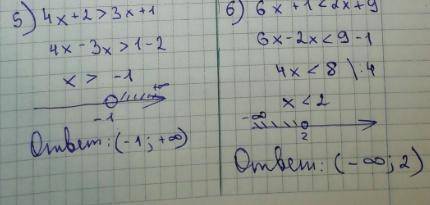 5) 4x+2>3x+1
4x-3x>1-2
x > -1
+∞
-1
Ответ: (-1; +∞)
6) 6x+1<2x+9
6x-2x<9-1
4x<8 \:4
x<2
-∞
2
Ответ: (-∞; 2)